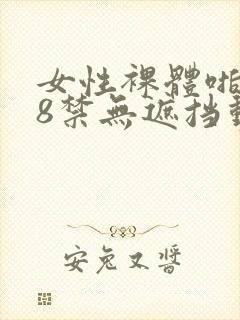 女性裸體啪
8禁無遮挡動
安兔又醬